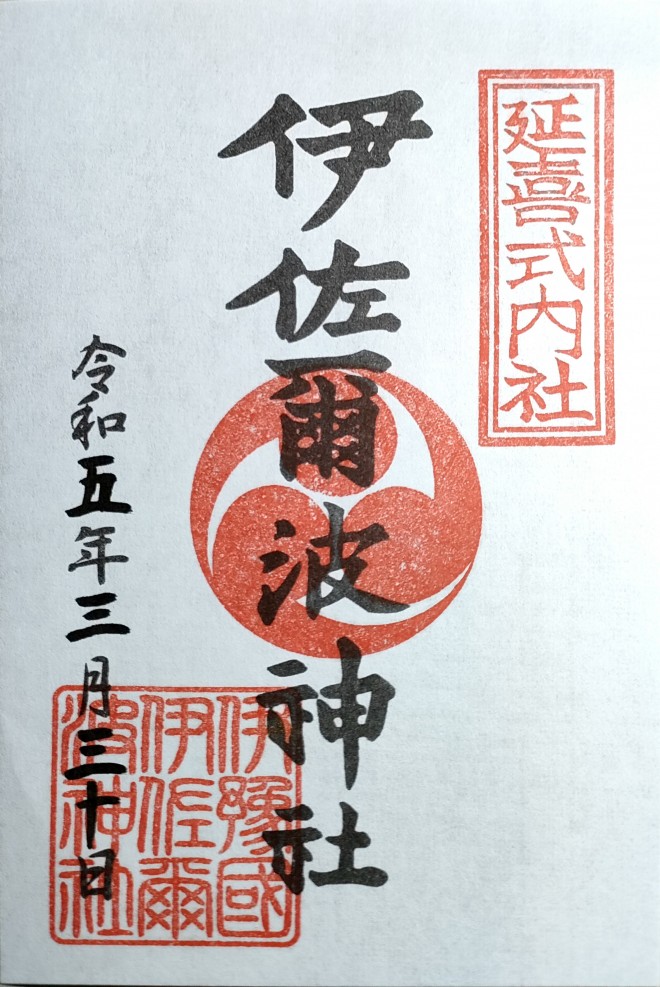 延喜式内社
伊佐爾波神社
令和五年三月三十日
伊豫國
伊佐爾
波神社